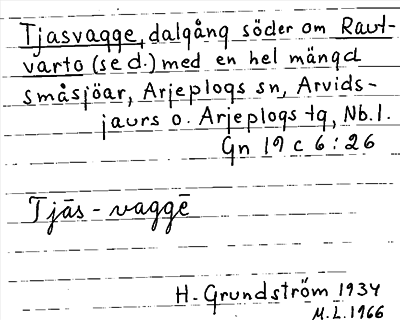 Tjasvagge, dalgång söder om Raut-
varto (se d.) med en hel mängd
småsjöar, Arjeplogs sn, Arvids-
jaurs o. Arjeplogs tg, Nb.l.
Gn 19 c 6:26
Tjās - vaggē
H. Grundström 1934
M.L. 1966